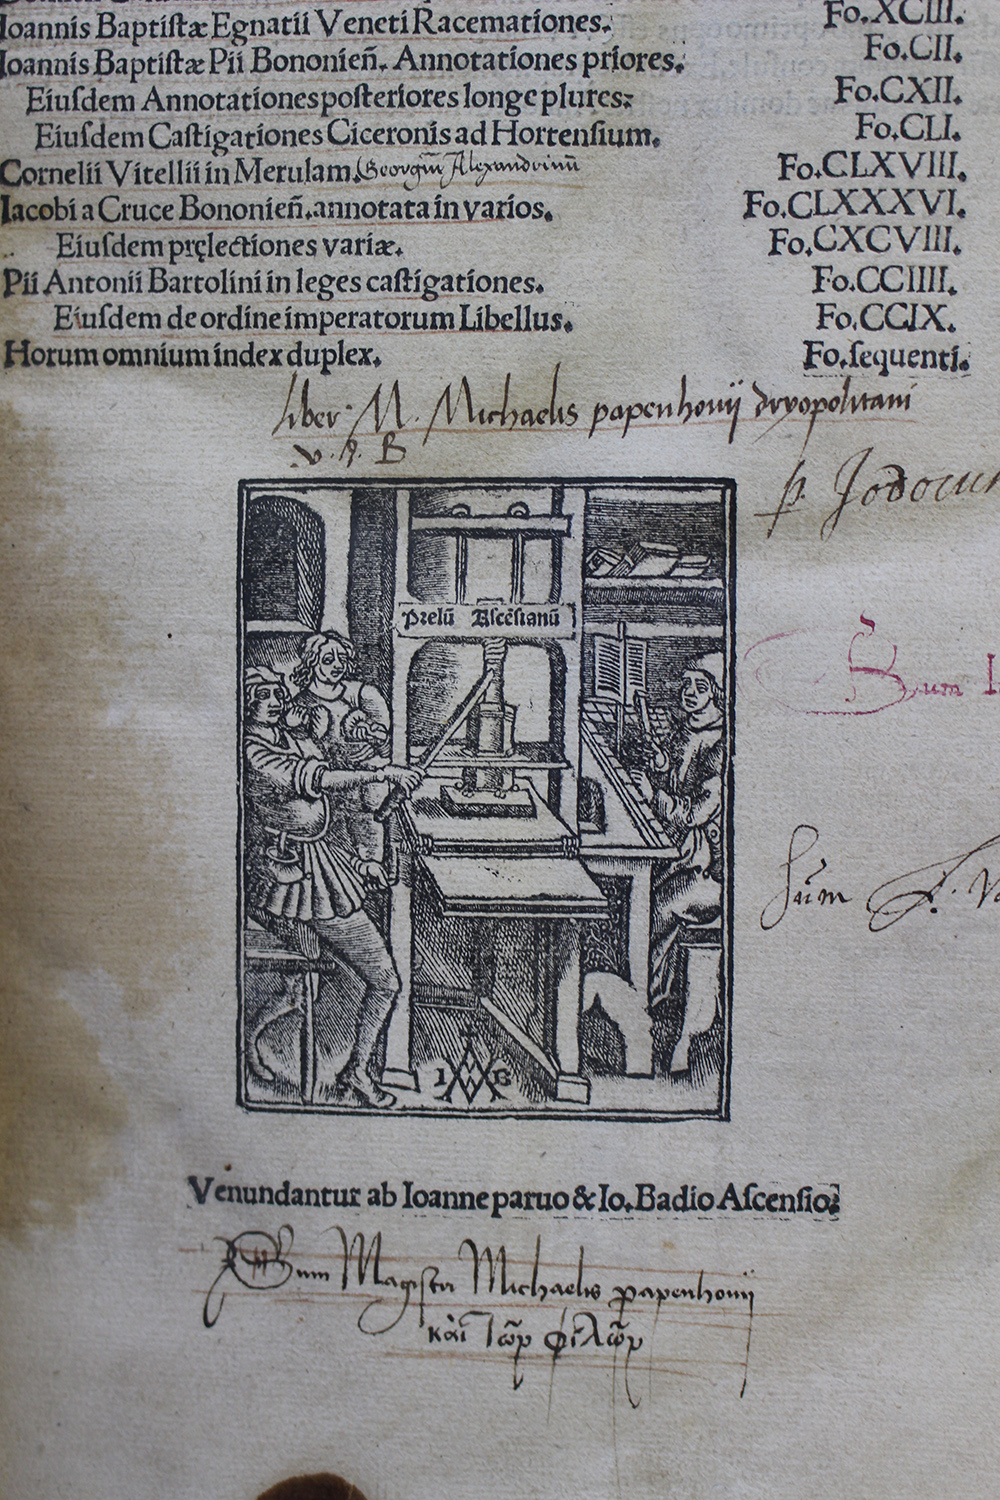 Ioannis Baptiſtæ Egnatii Veneti Racemationes. Fo.XCIII.
Ioannis Baptiſtæ Pii Bononieñ. Annotationes priores. Fo.CII.
Eiuſdem Annotationes poſteriores longe plures. Fo.CXII.
Eiuſdem Caſtigationes Ciceronis ad Hortenſium. Fo.CLI.
Cornelii Vitellii in Merulam. Georgiū Alexandrinū Fo.CLXVIII.
Iacobi a Cruce Bononieñ. annotata in varios. Fo.CLXXXVI.
Eiuſdem pręlectiones variæ. Fo.CXCVIII.
Pii Antonii Bartolini in leges caſtigationes. Fo.CCIIII.
Eiuſdem de ordine imperatorum Libellus. Fo.CCIX.
Horum omnium index duplex. Fo.ſequenti.
liber M. Michaelis papenhouij dryopolitani
p. Jodocu
Prelū Aſcēſianū
Sum
Sum
I B
Venundantur ab Ioanne paruo & Io. Badio Aſcenſio.
Sum Magistri Michaelis papenhouij
καὶ τῶν φίλων